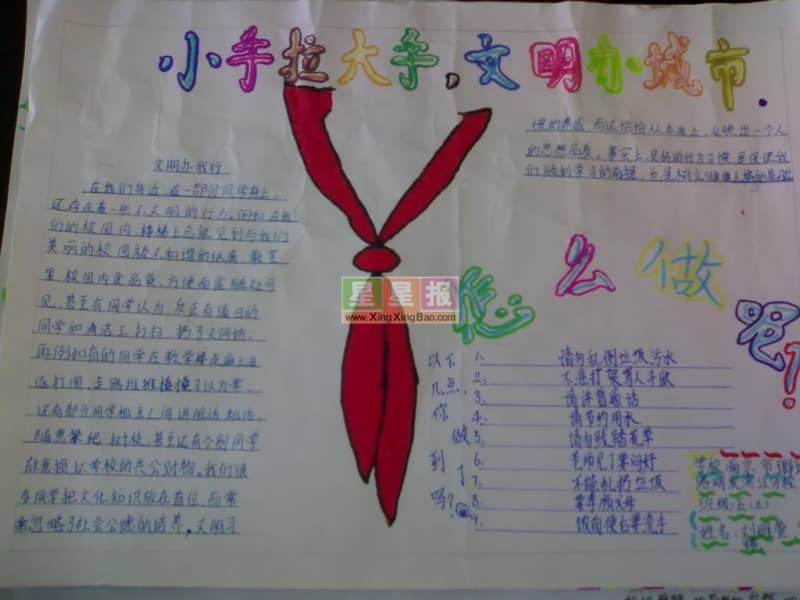 小手拉大手，文明办城市.
文明办我行
在我们身边,在一部分同学身上,
还存在着一些不文明的行为。例如在我
们的校园内,楼梯上总能见到与我们
美丽的校园极不和谐的纸屑,教室
里、校园内食品袋、方便面盒随处可
见,甚至有同学认为:反正有值日的
同学和清洁工打扫,扔了又何妨,
再例如有的同学在教学楼走廊上追
逐打闹,走路推推搡搡习以为常,
还有部分同学相互之间讲脏话、粗话,
随意攀爬 树枝,甚至还有个别同学
故意损坏学校的共公财物。我们很
多同学把文化知识放在首位,而常
常忽略了社会公德的培养,文明习
惯的养成,而这恰恰从本质上,反映出一个人
的思想品质。事实上,良好的行为习惯,是保证我
们顺利学习的前提,也是树立健康人格的基础
星星报
www.XingXingBao.com
怎么做呢?
以下几点,你做到了吗?
1. 请勿乱倒垃圾污水
2. 不进打架骂人斗殴
3. 请讲普通话
4. 请节约用水
5. 请勿践踏花草
6. 老师见了要问好
7. 不能乱扔垃圾
8. 要孝顺父母
9. 饭前便后要洗手
学校:南京市
班级:五
姓名:刘